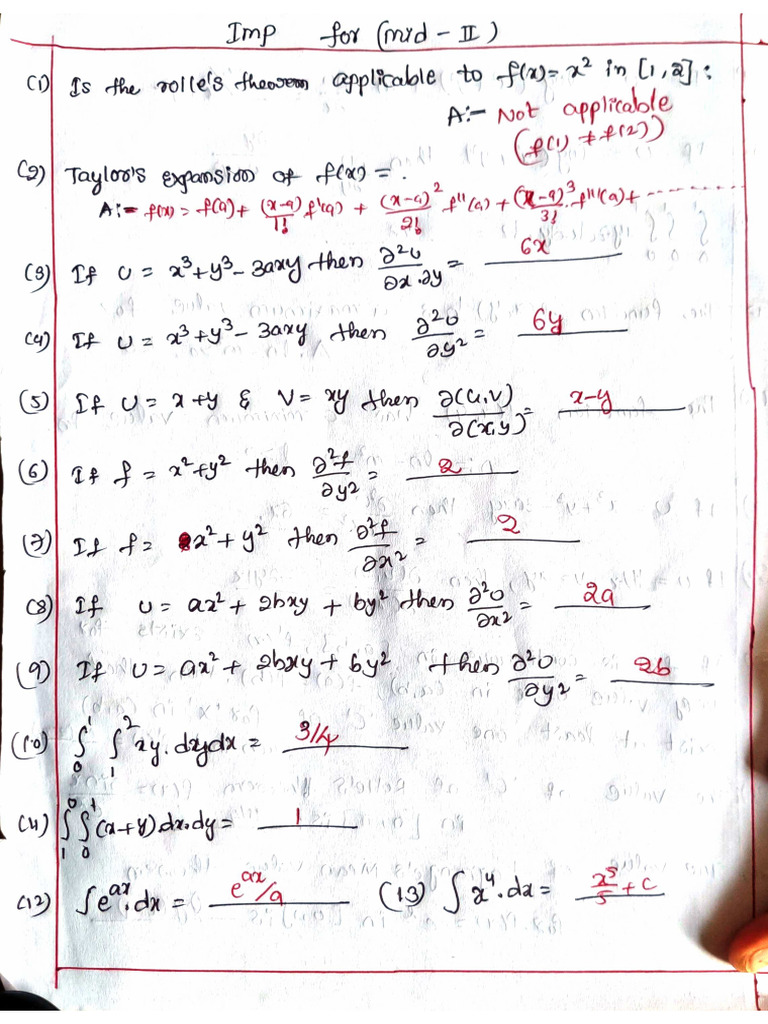 Imp for (mid - II)
(1) Is the rolle's theorem applicable to f(x) = x² in [1,2] :
A:- Not applicable
(f(1) ≠ f(2))
(2) Taylor's expansion of f(x) = .
A:- f(x) = f(a) + (x-a)/1! f'(a) + (x-a)²/2! f''(a) + (x-a)³/3! f'''(a) + -------
(3) If U = x³+y³-3axy then ∂²U/∂x.∂y = 6x
(4) If U = x³+y³-3axy, then ∂²U/∂y² = 6y
(5) If U = x+y & V = xy then ∂(U,V)/∂(x,y) = x-y
(6) If f = x²+y² then ∂²f/∂y² = 2
(7) If f = x²+y² then ∂²f/∂x² = 2
(8) If U = ax² + 2bxy + by² then ∂²U/∂x² = 2a
(9) If U = ax² + 2bxy + by² then ∂²U/∂y² = 2b
(10) ∫₀¹ ∫₁² xy.dxdydx = 3/4
(11) ∫₁⁰ ∫₀¹ (x+y).dx.dy = 1
(12) ∫e^ax.dx = e^ax/a (13) ∫x⁴.dx = x⁵/5 + c